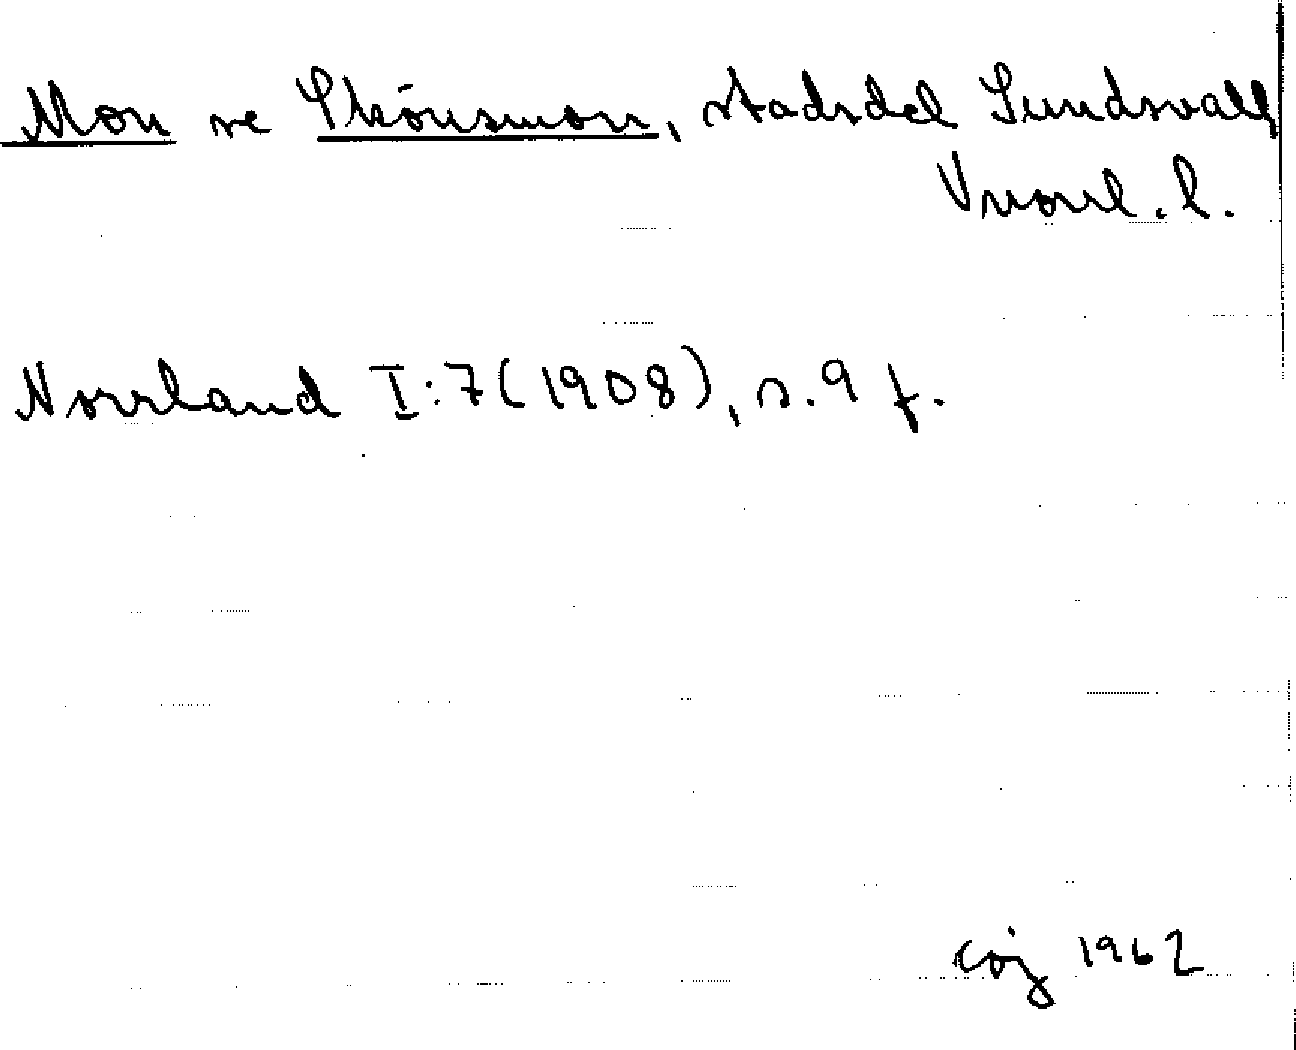 Mon se Skönsmon, stadsdel Sundsvall
Vnorrl. l.
Norrland I:7 (1908), s. 9 f.
1962